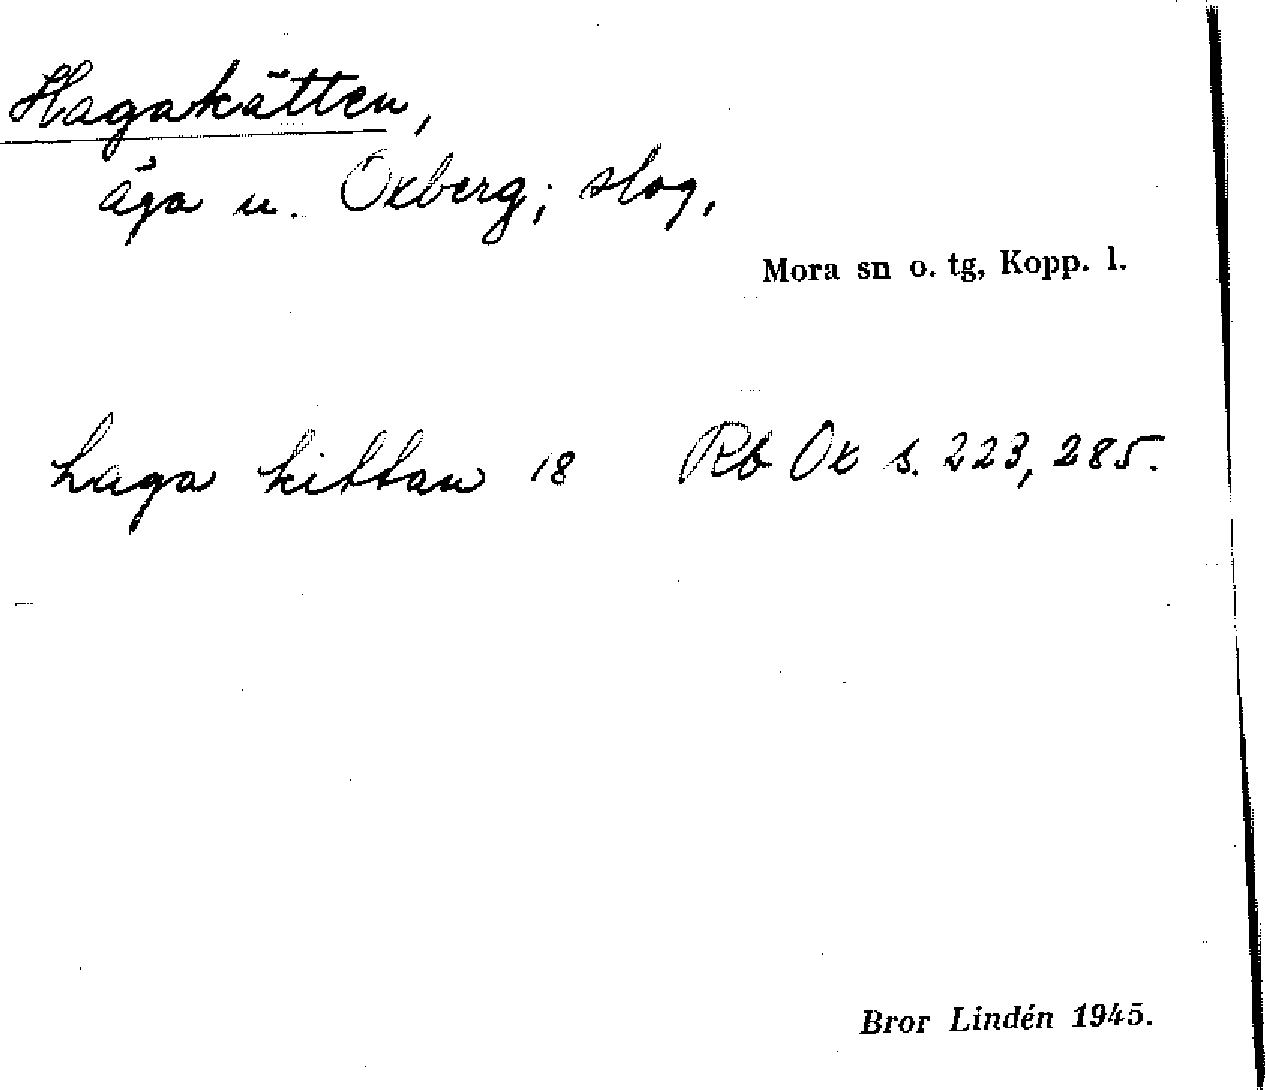 Hagakätten,
äga u. Oxberg; slog,
Mora sn o. tg, Kopp. l.
haga kittan 18 Rb Ox s. 223, 285.
Bror Lindén 1945.